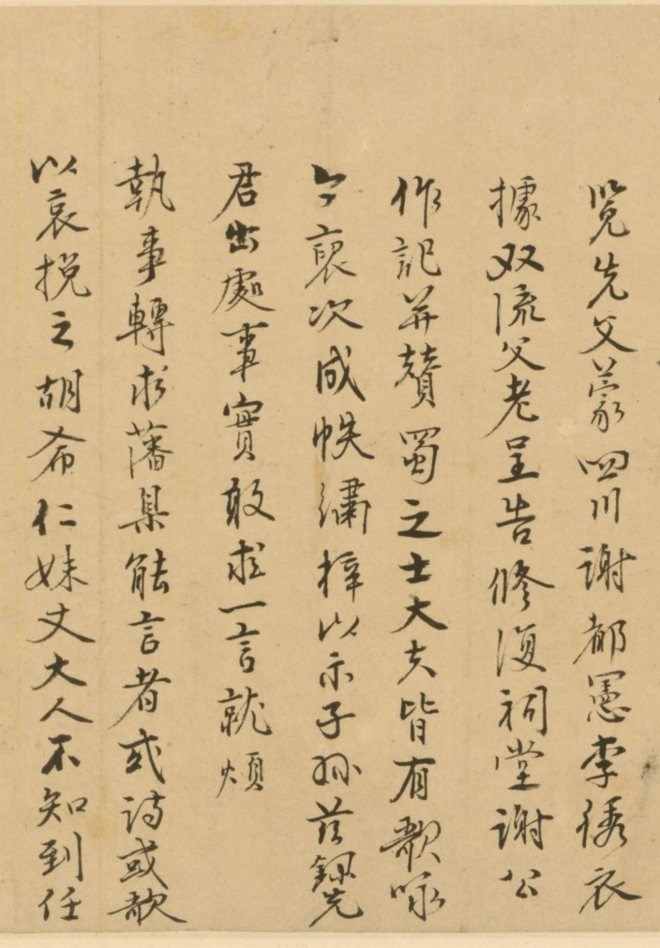 览先父蒙四川謝都憲李綉衣
據双流父老呈告修復祠堂謝公
作記并贊蜀之士大夫皆有歌咏
今裒次成帙繡梓以示子孫茲
君出處事實敢求一言就煩
執事轉求藩臬能言者或詩或歌
以哀挽之胡希仁妹丈大人不知到任